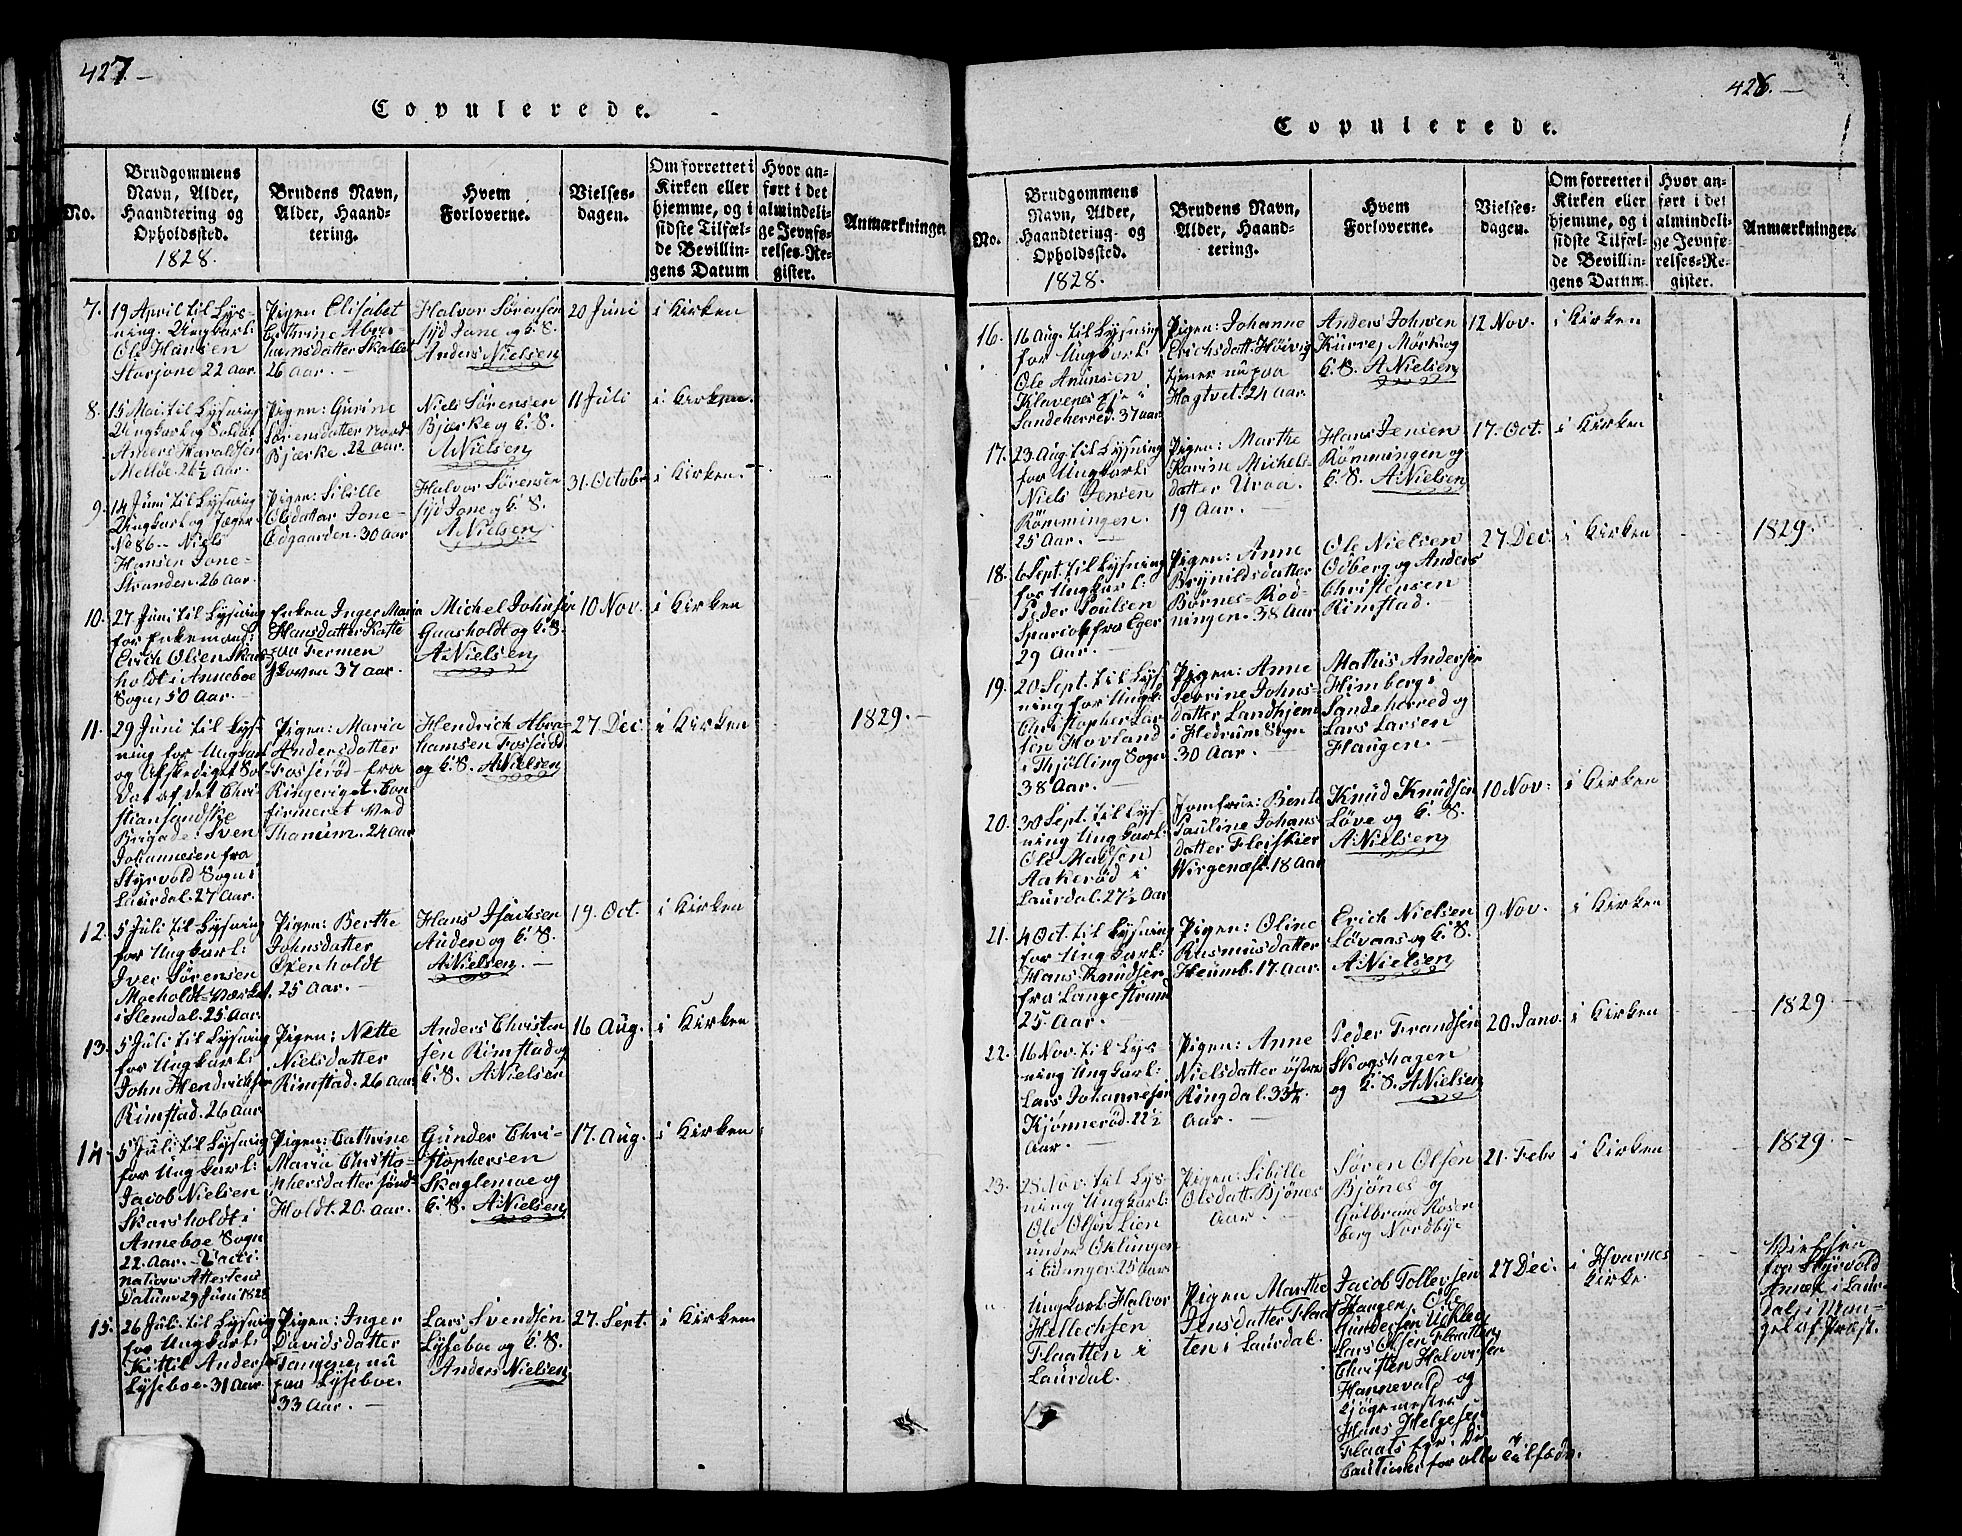 427.
Copulerede.
No.
Brudgommens
Navn, Alder,
Haandtering og
Opholdssted.
1828.
Brudens Navn,
Alder, Haand-
tering.
Hvem
Forloverne.
Vielses-
dagen.
Om forrettet i
Kirken eller
hjemme, og i
sidste Tilfæl-
de Bevillin-
gens Datum
Hvor an-
ført i det
almindeli-
ge Jevnfø-
relses-Re-
gister.
Anmærkninger
7.
19 April til Lys-
ning. Ungkarl:
Ole Hansen
Storjone 22 Aar.
Pigen Elisabet
Cathrine Abra-
hamsdatter Skalle
26 Aar.
Halvor Sörensen
syd Jone og K. S.
Anders Nielsen
20 Juni
i Kirken
8.
15 Mai til Lysning
Ungkarl og Soldat
Anders Haraldsen
Melløe. 26½ Aar.
Pigen: Gurine
Sörensdatter nord
Bjerke. 22 Aar.
Niels Sörensen
Bjerke og K. S.
A. Nielsen
11 Juli
i Kirken.
9.
14 Juni til Lysning
Ungkarl og Jæger
No 86 - Niels
Hansen Jone-
Stranden. 26 Aar.
Pigen: Sibille
Olsdatter Jone-
Ødgaarden. 30 Aar
Halvor Sörensen
syd Jone og K. S.
A. Nielsen
31. October
i Kirken.
10.
27 Juni til Lysning
for Enkemand:
Erich Olsen Skars-
holdt i Anneboe
Sogn, 50 Aar.
Enken Inger Maria
Hansdatter Katte
paa Fermen
Skoven 37 Aar.
Michel Johnsen
Gaasholdt og K. S.
A. Nielsen
10 Nov.
i Kirken
11.
29 Juni til Lys-
ning for Ungkarl
og Afskediget Sol-
dat af det Chri-
stiansandske
Brigade: Sven
Johannesen fra
Styrvold Sogn i
Laurdal. 27 Aar.
Pigen: Maria
Andersdatter
Fosserød - fra
Ringeriget. Con-
firmeret ved
Thanum. 24 Aar
Hendrich Abra-
hamsen Fosserød
og K. S. A. Nielsen
27 Dec
i Kirken
1829.
12.
5 Juli til Lysning
for Ungkarl:
Iver Sörensen
Moeholdt-Værket
i Slemdal. 25 Aar
Pigen: Berthe
Johnsdatter
Oxenholdt
25 Aar.
Hans Isachsen
Auden og K. S.
A. Nielsen.
19. Oct.
i Kirken
13.
5 Juli til Lysning
for Ungkarl:
John Hendrichsen
Rimstad. 26 Aar
Pigen: Nette
Nielsdatter
Rimstad. 26 Aar
Anders Christen
sen Rimstad og
K. S. A. Nielsen
16 Aug.
i Kirken
14.
5 Juli til Lysning
for Ungkarl:
Jacob Nielsen
Skarsholdt i
Anneboe Sogn
22 Aar. - Vacci-
nations Attestens
Datum 29 Juni 1828
Pigen: Cathrine
Maria Christo-
phersdatter sönd-
Holdt. 20. Aar.
Gunder Chri-
stophersen
Skoglemoe og
K. S. A. Nielsen
17. Aug.
i Kirken
15.
26 Juli til Lysning
for Ungkarl:
Kittil Andersen
Lyseboe. 31 Aar.
Pigen: Inger
Davidsdatter
Tangene, nu
paa Lyseboe.
33 Aar.
Lars Svendsen
Lyseboe og K. S.
Anders Nielsen
27. Sept.
i Kirken
428.
Copulerede.
No.
Brudgommens
Navn, Alder,
Haandtering og
Opholdssted.
1828.
Brudens Navn,
Alder, Haand-
tering.
Hvem
Forloverne.
Vielses-
dagen.
Om forrettet i
Kirken eller
hjemme, og i
sidste Tilfæl-
de Bevillin-
gens Datum.
Hvor an-
ført i det
almindeli-
ge Jevnfø-
relses-Re-
gister.
Anmærkninger.
16.
16 Aug. til Lysning
for Ungkarl:
Ole Amunsen
Klavenes Eje i
Sandeherred. 37 Aar
Pigen: Johanne
Erichsdatt. Høivig
tjener nu paa
Hagtvet. 24 Aar.
Anders Johnsen
Kurre, Mørk og
K. S. A. Nielsen
12 Nov.
i Kirken
17.
23. Aug. til Lysning
for Ungkarl:
Niels Jensen
Römmingen.
25 Aar.
Pigen: Marthe
Karine Michels-
datter Uraa.
19 Aar.
Hans Jensen
Römmingen og
K. S. A. Nielsen
17. Oct.
i Kirken
18.
6 Sept. til Lysning
for Ungkarl:
Peder Poulsen
fra Eger
29 Aar.
Pigen: Anne
Brynildsdatter
Börnes-Röd-
ningen. 38 Aar
Ole Nielsen
Odberg og Anders
Christensen
Rimstad.
27 Dec
i Kirken
1829.
19.
20 Sept. til Lys-
ning for Ungk:
Christopher Lar-
sen Hovland
i Thjølling Sogn
38 Aar.
Pigen: Anne
Severine Johns-
datter Landhjem
i Hedrum Sogn
30 Aar.
Mathis Andersen
Himberg i
Sandeherred og
Lars Larsen
Haugen.
20.
30 Sept. til Lys-
ning Ungkarl:
Ole Madsen
Aakerød i
Laurdal. 27½ Aar
Jomfrue: Bente
Pauline Johans-
datter Fleischer
Wirgenæs. 18 Aar
Knud Knudsen
Løve og K. S.
A. Nielsen
10 Nov.
i Kirken
21.
4 Oct. til Lysning
for Ungkarl:
Hans Knudsen
fra Langestrand
25. Aar.
Pigen: Oline
Rasmusdatter
Heumb. 17. Aar.
Erich Nielsen
Løvaas og K. S.
A. Nielsen
9 Nov.
i Kirken
22.
16 Nov. til Lys-
ning Ungkarl:
Lars Johannesen
Kjønnerød. 22½
Aar
Pigen: Anne
Nielsdatter östre
Ringdal. 33¼
Aar.
Peder Frandsen
Skogshagen
og K. S. A. Nielsen
20. Janv.
i Kirken
1829
23.
28 Nov. til Lys-
ning Ungkarl:
Ole Olsen Lien
under Oklungen
i Eidanger. 25 Aar
Pigen: Sibille
Olsdatt. Bjönes
Aar.
Sören Olsen
Bjönes og
Gulbram Rosen
berg Nordbye
21. Febr
i Kirken
1829
"
Ungkarl. Halvor
Hellechsen
Flaatten i
Laurdal.
Pigen Marthe
Jensdatter Flaat
ten i Laurdal.
Jacob Tollevsen
Haugen, Ole
Gundersen
Lars Olsen Flaatten
Christen Halvorsen
Hannevald og
Hans Helgesen
Flaats
Cautionister for alle Tilfælde.
27 Dec.
i Hvarnes
Kirke
Vielsen
fra Styrvold
Annex i Laur-
dal, i Man-
gel af Præst.